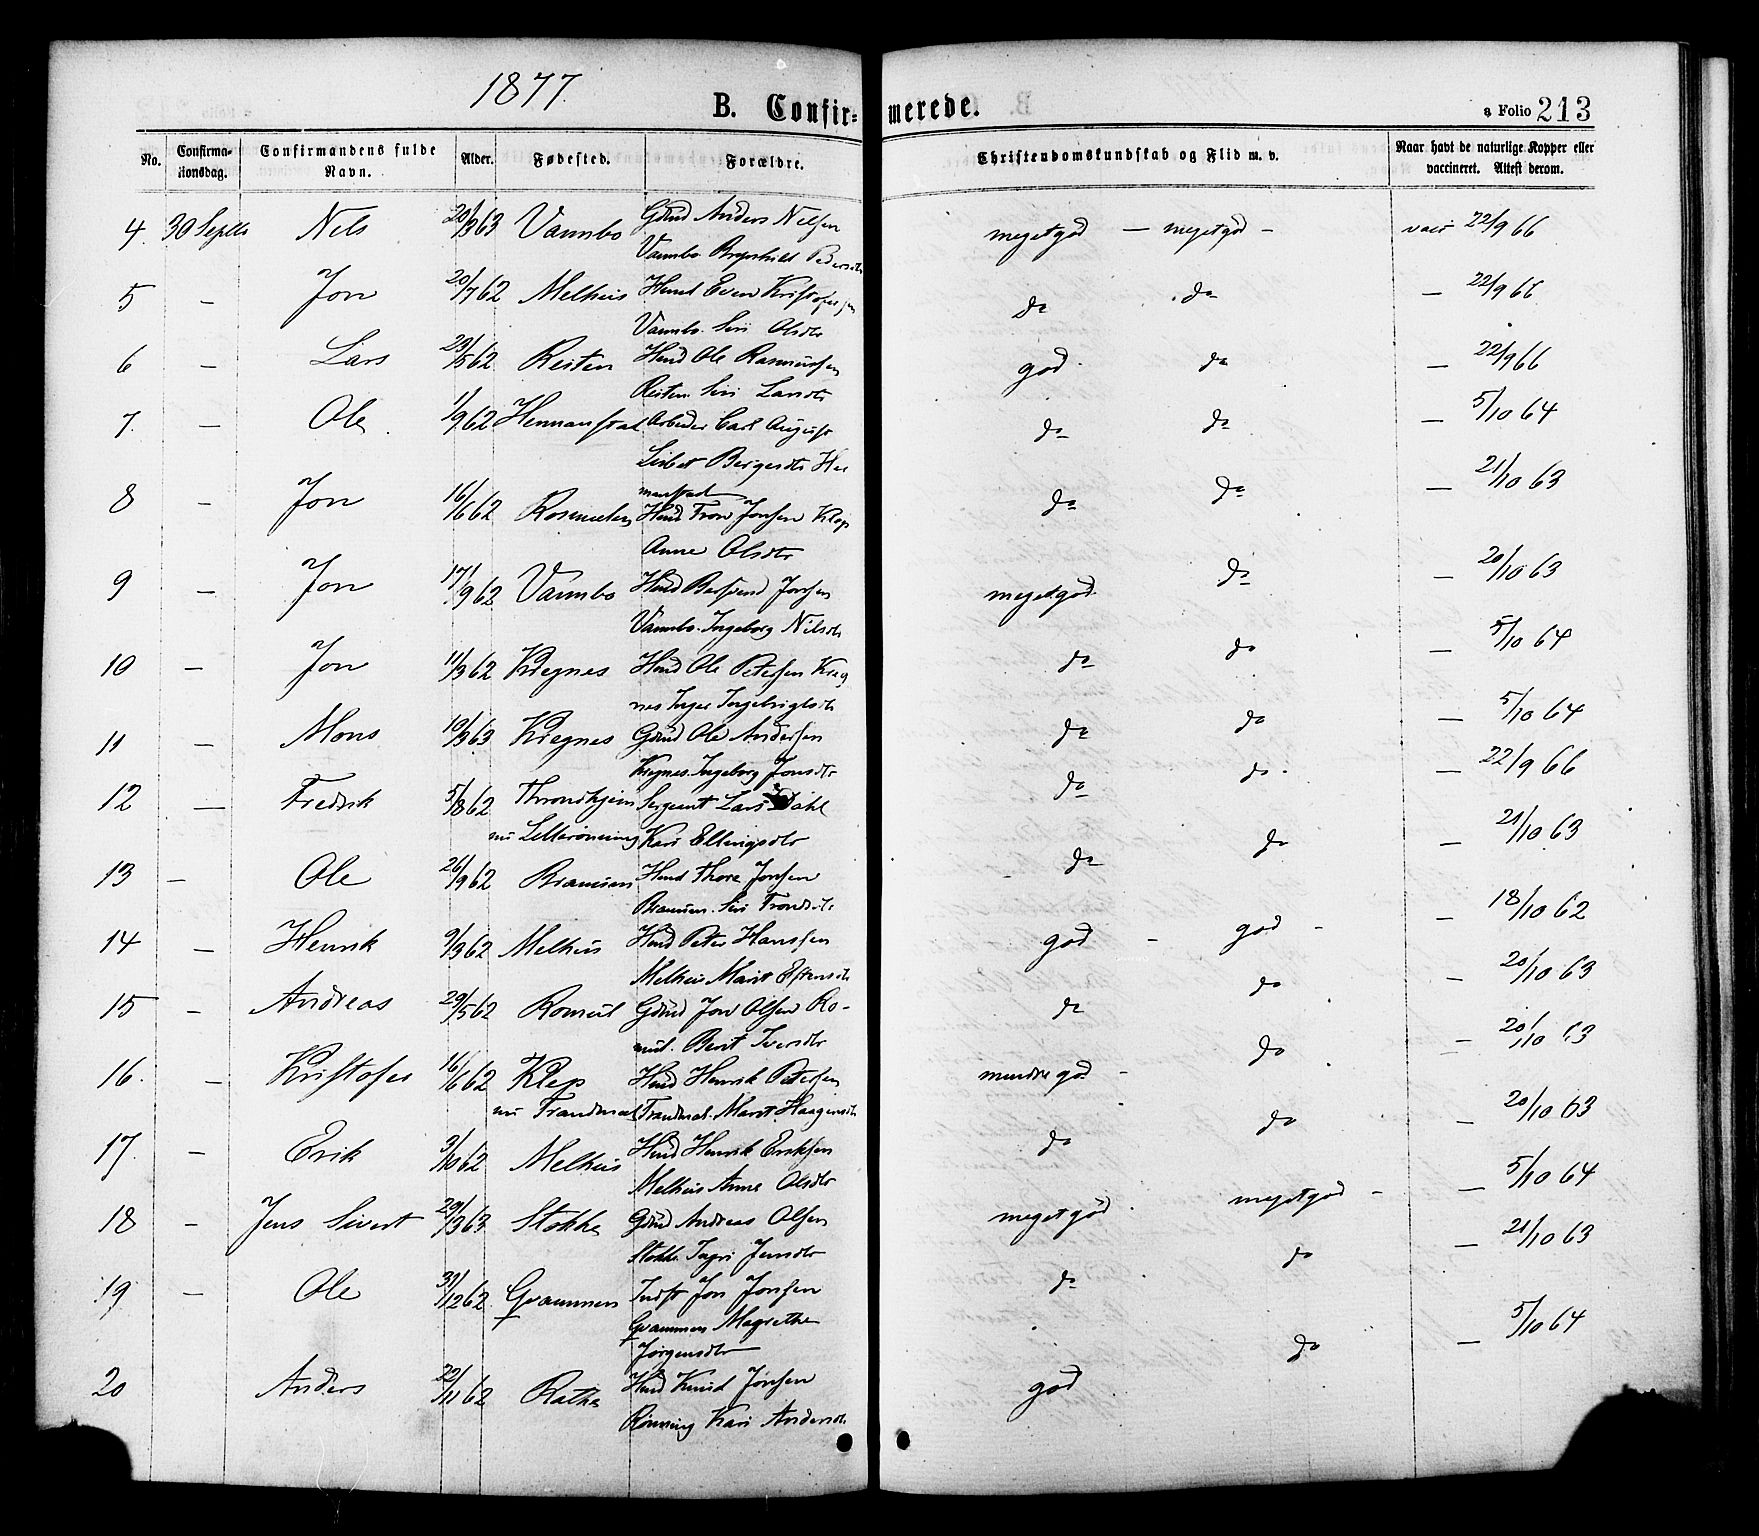 1877.
B. Confir-
merede.
a Folio 213
No.
Confirma-
tionsdag.
Confirmandens fulde
Navn.
Alder.
Fødested.
Forældre.
Christendomskundskab og Flid m. v.
Naar havt de naturlige Kopper eller
vaccineret. Attest derom.
4. 30 Septbr Nels 20/3 63 Vammbo Gdmd Anders Nelsen megetgod — megetgod - vacc 22/9 66
Vammbo Pedersdtr
5 - Jon 20/7 62 Melhus Hmd Even Kristofersen do do — 22/9 66
Vammbo. Siri Olsdtr
6 - Lars 23/5 62 Reiten Hmd Ole Rasmussen god. do — 22/9 66
Reiten Siri Larsdtr
7. - Ole 1/9 62 Hermanstad Arbeider Carl August do do — 5/10 64
Lisbet Bergesdtr Her
manstad
8 - Jon 16/6 62 Hmd Tron Jonsen Klep do do — 21/10 63
Anne Olsdtr
9 - Jon 17/9 62 Vammbo Hmd Jonsen megetgod. do — 20/10 63
Vammbo. Ingeborg Nilsdtr
10 - Jon 11/3 62 Kregnes Hmd Ole Petersen Kreg do do — 5/10 64
nes Inger Ingebrigtsdtr
11 - Mons 10/3 63 Kregnes Gdmd Ole Andersen do do — 5/10 64
Kregnes. Ingeborg Jonsdtr
12 — Fredrik 5/8 62 Throndhjem Sergeant Lars Dahl do do. — 22/9 66
nu Kari Ellingsdtr
13 — Ole 26/9 62 Bramsen Hmd Thore Jonsen do do — 21/10 63
Bramsen. Siri Trondsdtr
14 - Henrik 9/3 62 Melhus Hmd Peter Hanssen god - god - — 18/10 62
Melhus Marit Estensdtr
15 - Andreas 29/5 62 Romul Gdmd Jon Olsen Ro- do do — 20/10 63
mul. Berit Iversdtr
16. - Kristofer 16/6 62 Klep Hmd Henrik Petersen mindregod - do — 20/10 63
nu Trandmal Trandmal. Marit Haagensdtr
17. - Erik 3/10 62 Melhus Hmd Henrik Eriksen do do — 20/10 63
Melhus Anne Olsdtr
18 - Jens Sivert 29/3 63 Stokke Gdmd Andreas Olsen megetgod. megetgod - — 5/10 64
Stokke. Ingri Jensdtr
19 - Ole 31/12 62. Gvammen Indst Jon Jonsen do do — 21/10 63
Gvammen Magrethe
Jørgensdtr
20 Anders 22/11 62 Rathe Hmd Knud Jonsen god do — 5/10 64
Rønning Kari Andersdtr